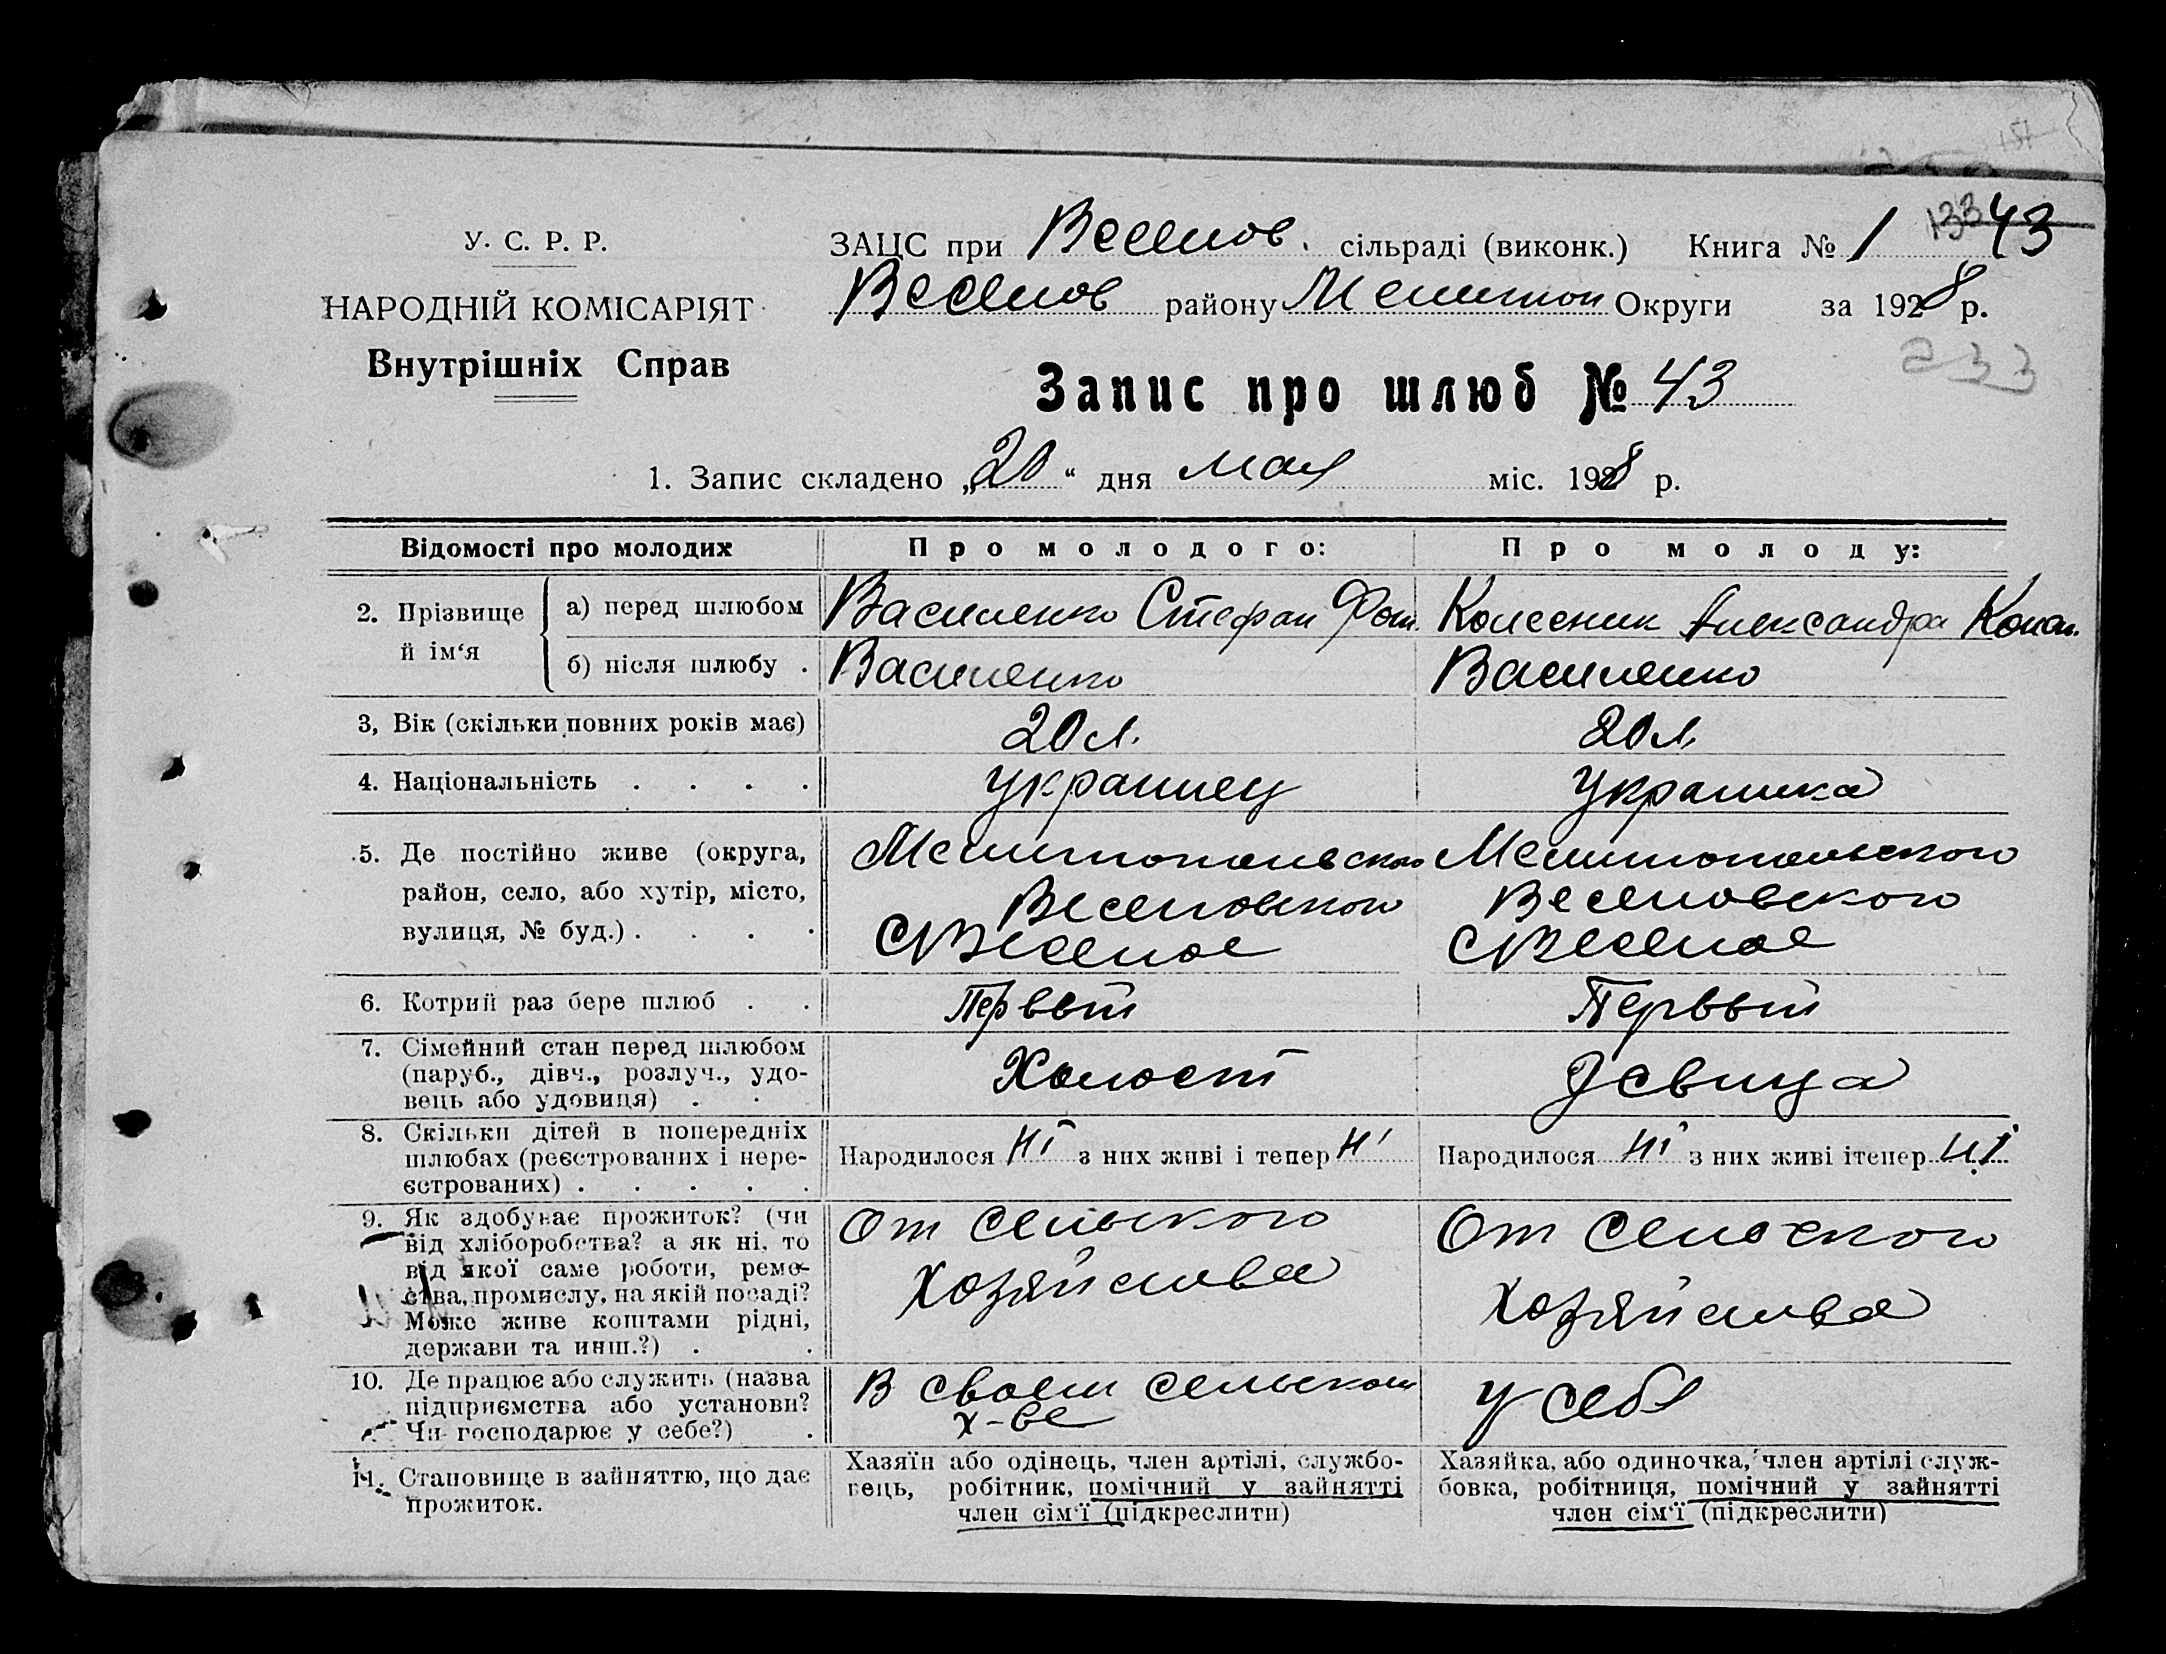 133 43
У. С. Р. Р.
НАРОДНІЙ КОМІСАРІЯТ
Внутрішніх Справ
ЗАЦС при Веселов. сільраді (виконк.) Книга № 1
Веселов району Мелитоп Округи за 1928 р.
233
Запис про шлюб № 43
1. Запис складено „20“ дня мая міс. 1928 р.
Відомості про молодих
Про молодого:
Про молоду:
2. Прізвище й ім‘я
а) перед шлюбом
Василенко Стефан Фом.
Колесник Александра Конон.
б) після шлюбу .
Василенко
Василенко
3, Вік (скільки повних років має)
20 л.
20 л.
4. Національність . . . .
украинец
Украинка
5. Де постійно живе (округа,
район, село, або хутір, місто,
вулиця, № буд.) . . . .
Мелитопольского
Веселовского
с Веселое
Мелитопольского
Веселовского
с Веселое
6. Котрий раз бере шлюб . .
Первый
Первый
7. Сімейний стан перед шлюбом
(паруб., дівч., розлуч., удо-
вець або удовиця) . .
Холост
Девица
8. Скільки дітей в попередніх
шлюбах (реєстрованих і нере-
єстрованих) . . . . .
Народилося ні з них живі і тепер ні
Народилося ні з них живі ітепер ні
9. Як здобуває прожиток? (чи
від хліборобства? а як ні, то
від якої саме роботи, реме-
ства, промислу, на якій посаді?
Може живе коштами рідні,
держави та инш.?) . .
От сельского
хозяйства
От сельского
хозяйства
10. Де працює або служить (назва
підприємства або установи?
Чи господарює у себе?) .
В своем сельском
х-ве
у себя
11. Становище в зайняттю, що дає
прожиток.
Хазяїн або одінець, член артілі, службо-
вець, робітник, помічний у зайнятті
член сім‘ї (підкреслити)
Хазяйка, або одиночка, член артілі служ-
бовка, робітниця, помічний у зайнятті
член сім‘ї (підкреслити)